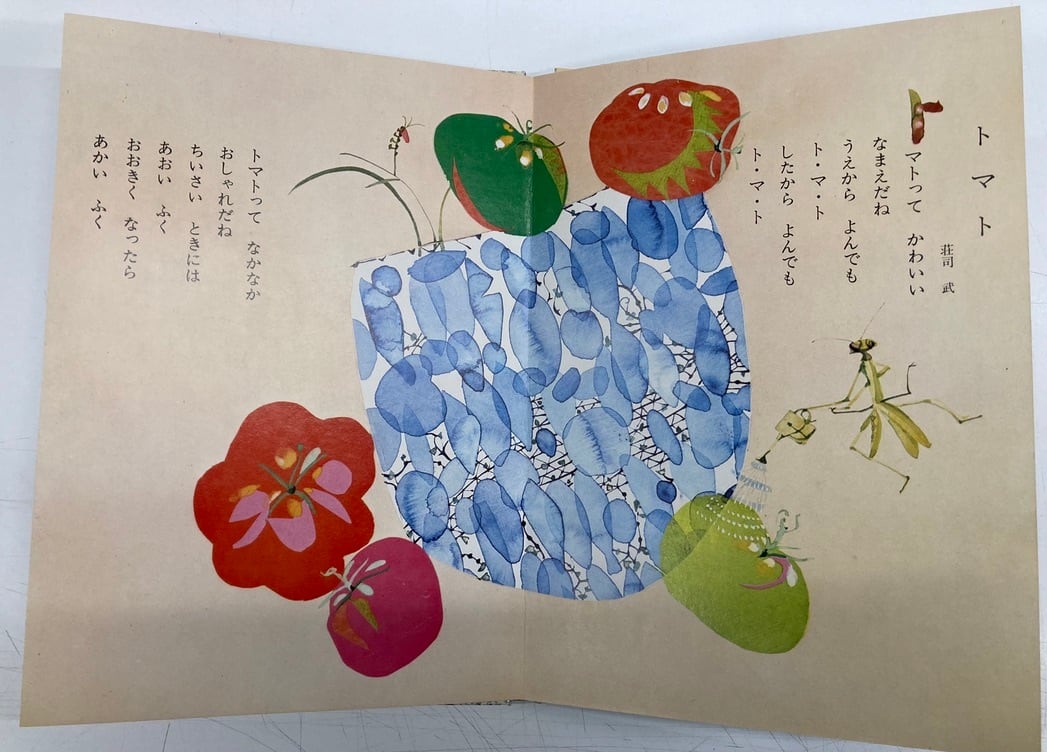 トマト
荘司 武
トマトって かわいい
なまえだね
うえから よんでも
ト・マ・ト
したから よんでも
ト・マ・ト
トマトって なかなか
おしゃれだね
ちいさい ときには
あおい ふく
おおきく なったら
あかい ふく